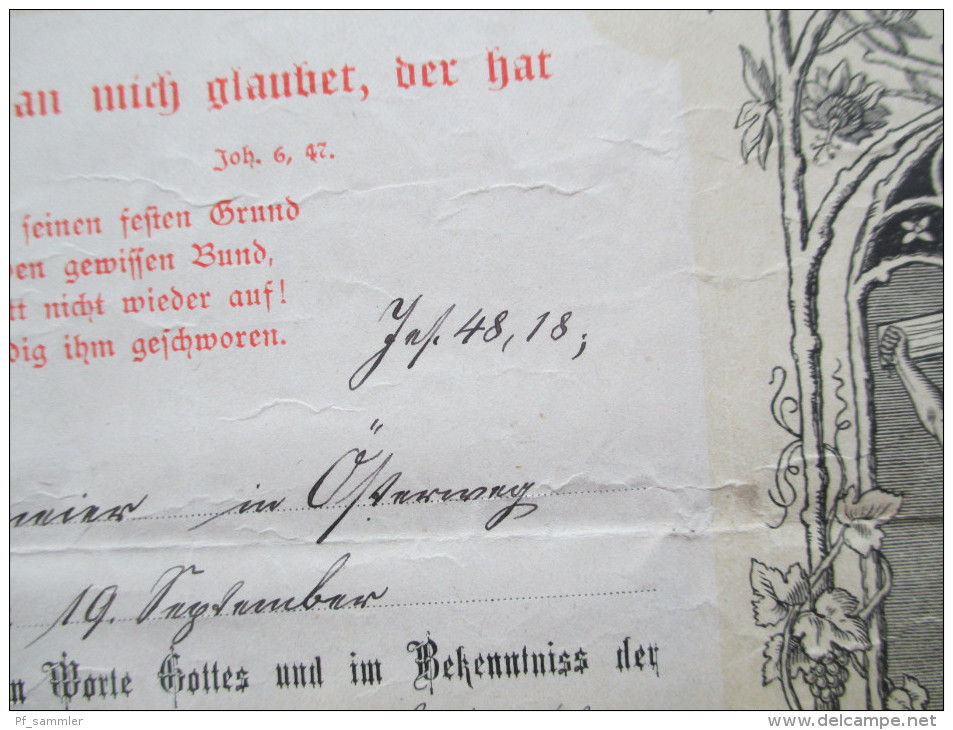 an mich glaubet, der hat
Joh. 6, 47.
seinen festen Grund
gewissen Bund,
nicht wieder auf!
ihm geschworen.
Jes. 48, 18;
meier in Österweg
19. September
Worte Gottes und im Bekenntniss der
Pf_sammler
www.delcampe.net